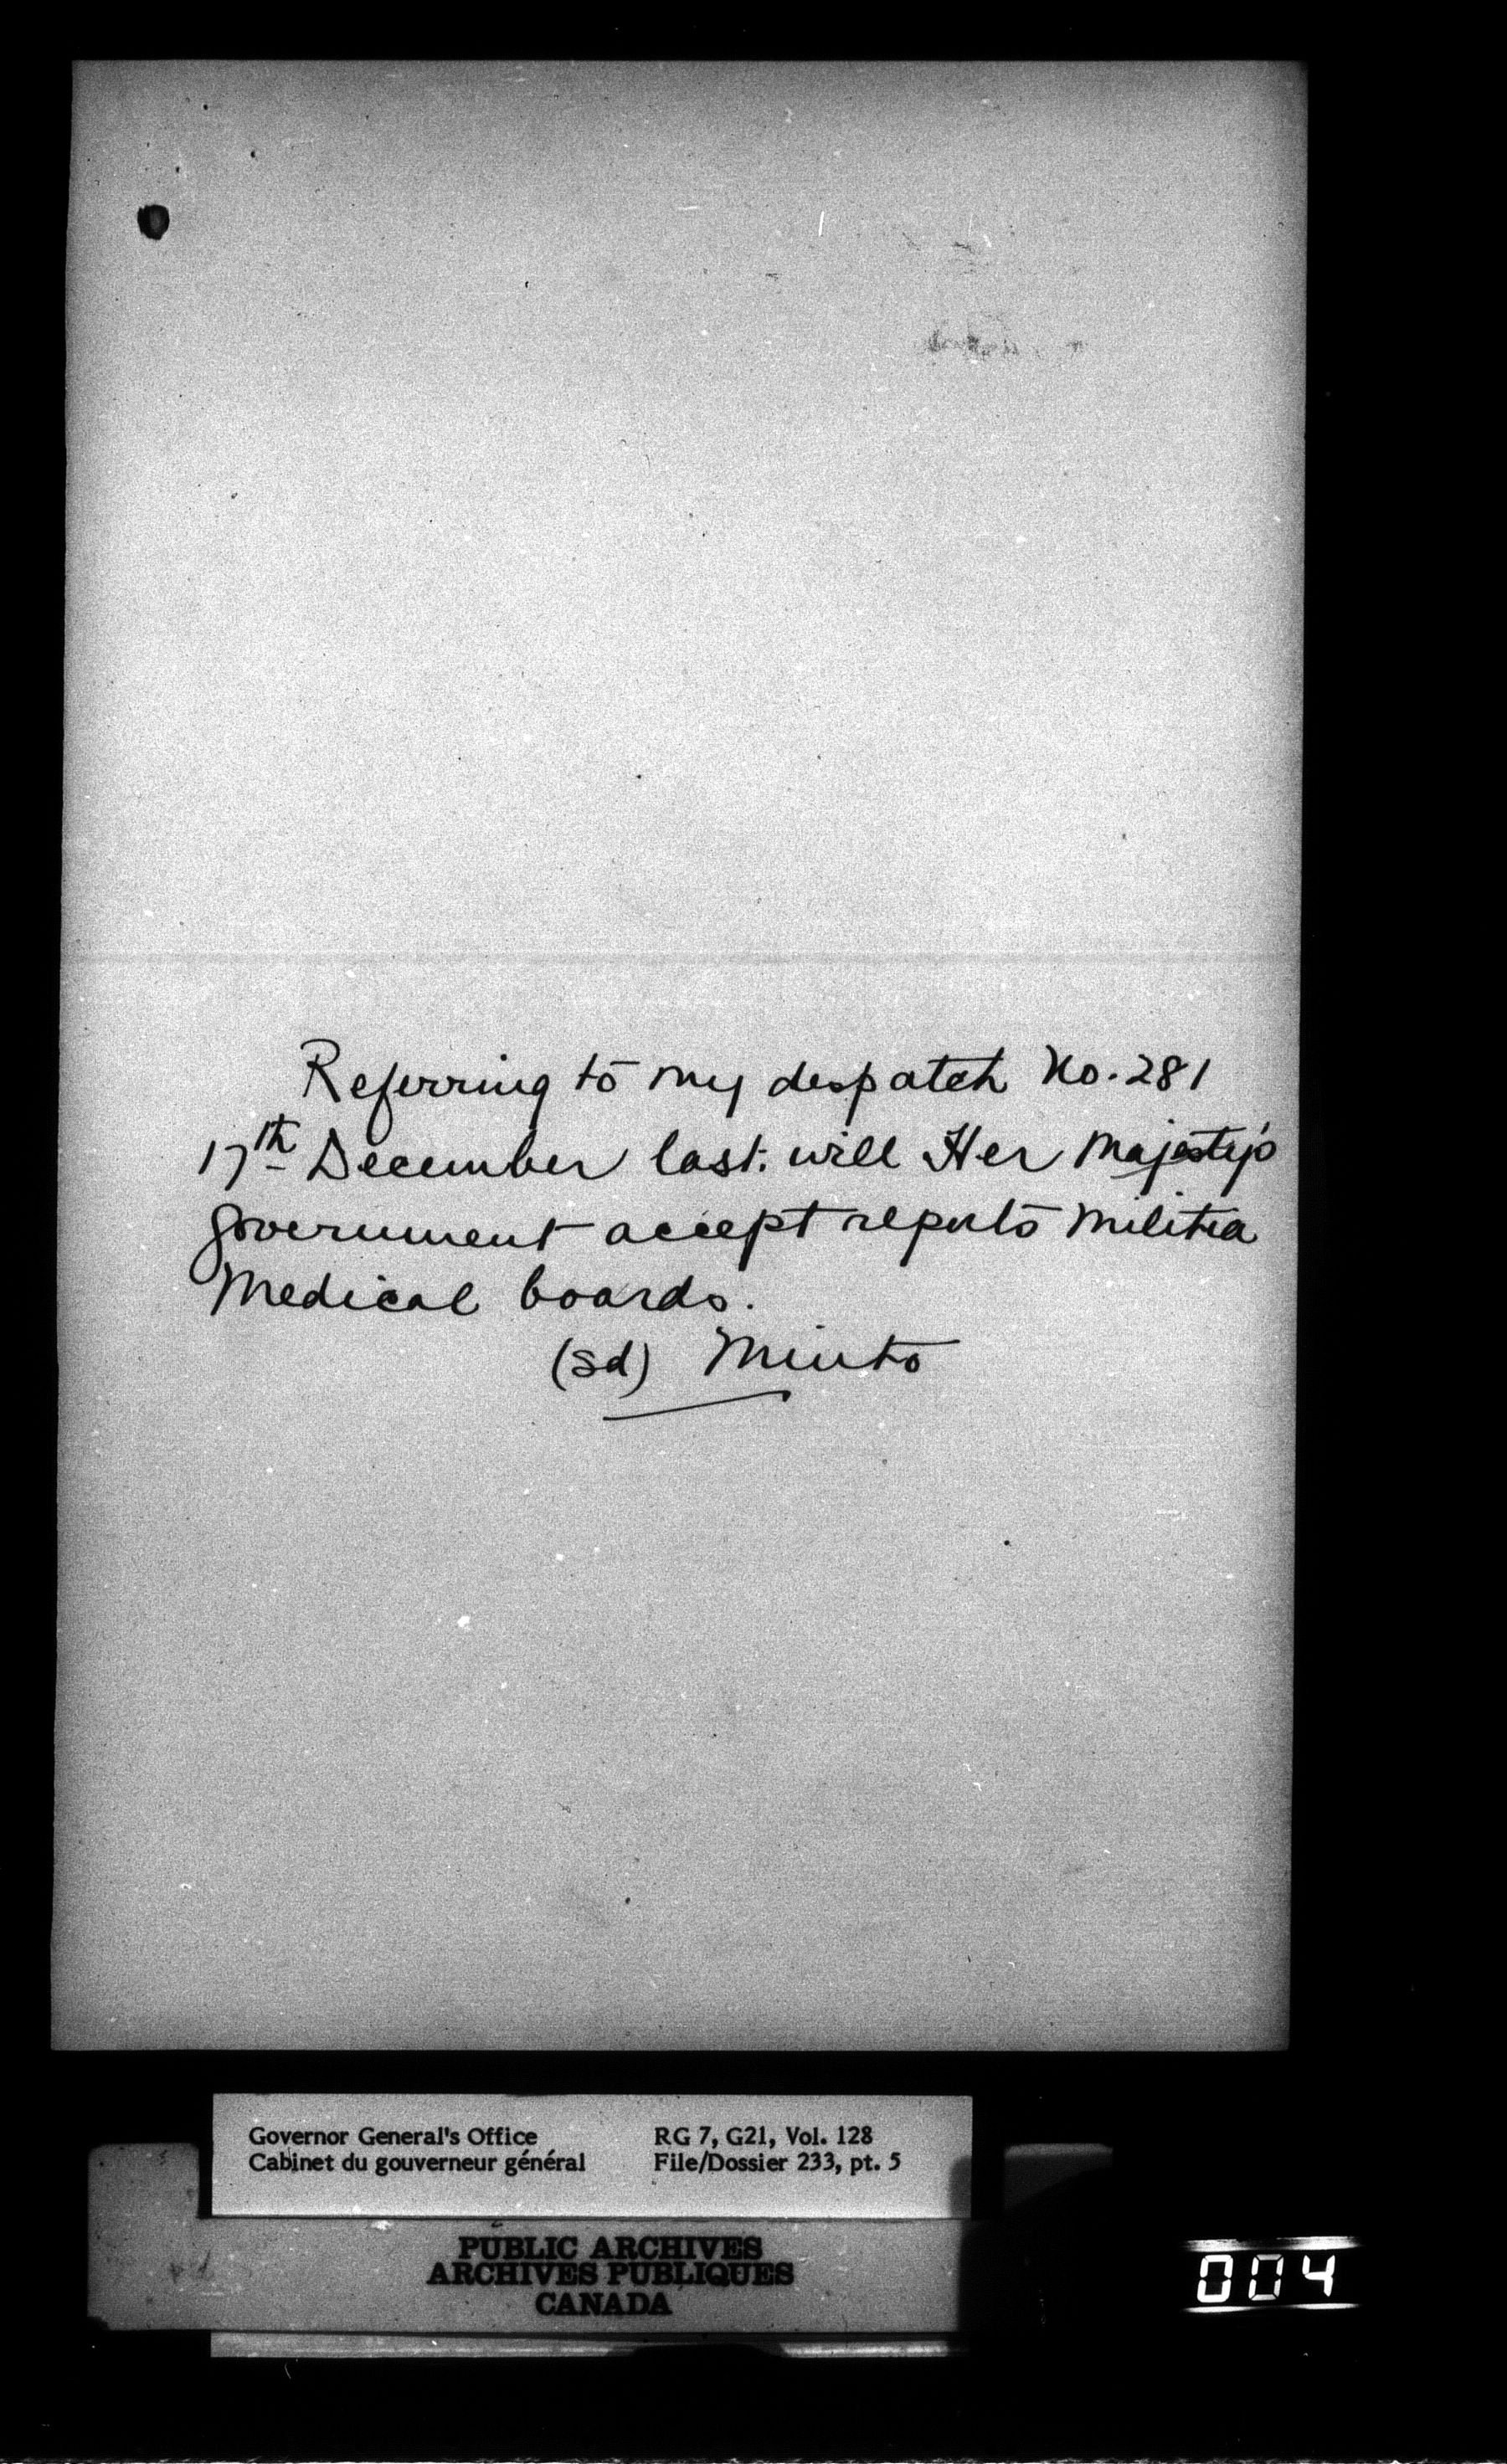 Referring to my despatch No. 281
17th December last. will Her Majesty's
Government accept reports Militia
Medical boards.
(sd) Minto
Governor General's Office RG 7, G21, Vol. 128
Cabinet du gouverneur général File/Dossier 233, pt. 5
PUBLIC ARCHIVES
ARCHIVES PUBLIQUES
CANADA
004